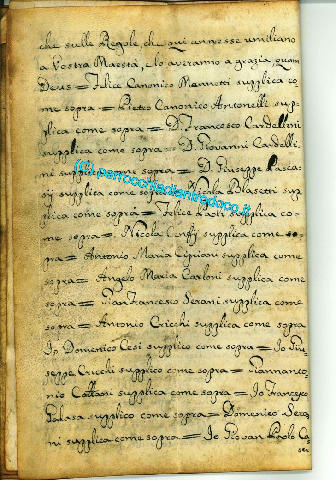 che sulle Regole, che qui annesse umiliano
a Vostra Maestà, e lo averanno a grazia quam
Deus = Felice Canonico Mannotti supplica co
me sopra = Pietro Canonico Antonelli sup-
plica come sopra = D. Francesco Cardellini
supplica come sopra = D. Giovanni Cardelli
ni supplica come sopra = D. Giuseppe
supplica come sopra = Nicola Blasetti sup
plica come sopra = Felice Paoli supplica co-
me sopra = Nicola supplica come so-
pra = Antonio Maria Cipriani supplica come
sopra = Angelo Maria Carloni supplica come
sopra = Gian Francesco Serani supplica come
sopra = Antonio Cricchi supplica come sopra
Io Domenico Cesi supplico come sopra = Io Giu
seppe Cricchi supplico come sopra = Giannanto
nio Cattani supplica come sopra = Io Francesco
Palasa supplico come sopra = Domenico Sera
ni supplica come sopra = Io Giovan Paolo Ca
ser
(C) parrocchiadiantrodoco.it